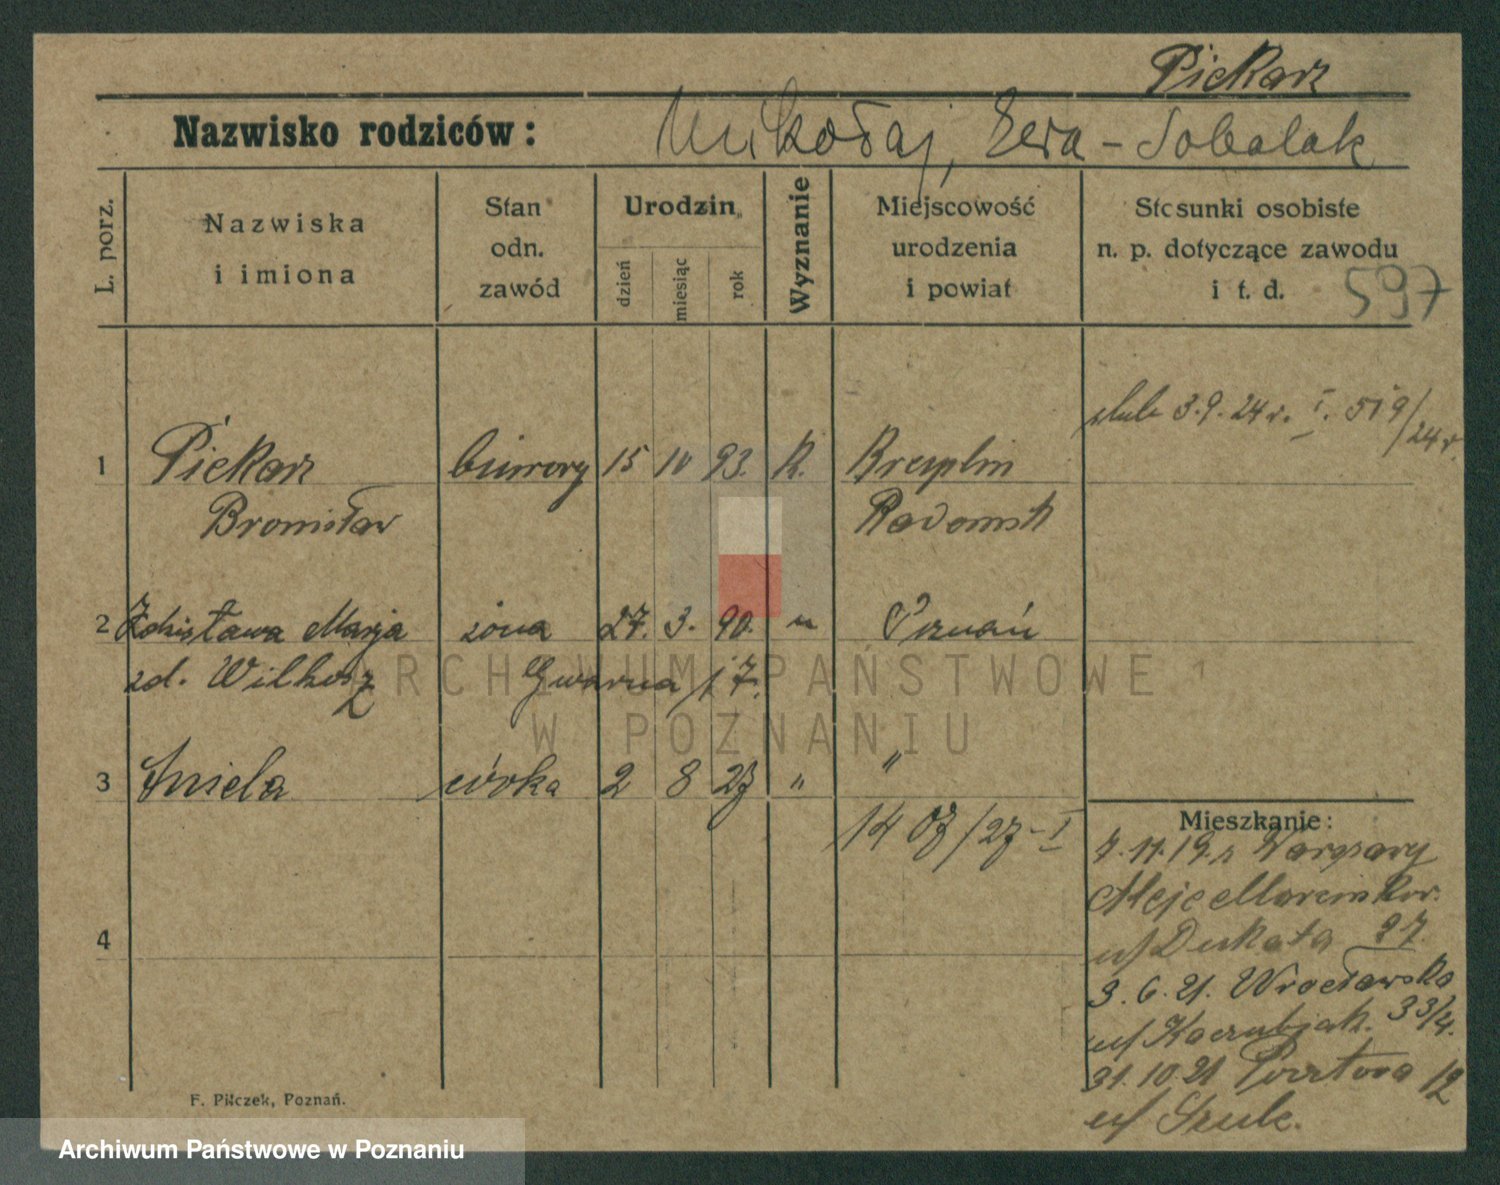 Piekarz
Nazwisko rodziców: Mikołaj, Ewa - Sobalak
L. porz.
Nazwiska i imiona
Stan odn. zawód
Urodzin
dzień
miesiąc
rok
Wyznanie
Miejscowość urodzenia i powiat
Stosunki osobiste n. p. dotyczące zawodu i t. d.
597
ślub 3.9.24 r. I. 519/24 r.
1 Piekarz biurowy 15 10 93. R.
Bronisław Radomsk
2 Zdzisława Marja żona 27. 3. 90. " Poznań
zd. Wilkosz Gwarna 17.
3 Aniela córka 2 8 27 " "
1407/27 - I
4
Mieszkanie:
7.11.19. z Warszawy
Aleje Marcinkow.
u/ Dukata 27
3.6.21. Wrocławska
u/ Kaczubjak. 33/4.
31.10.21 Pocztowa 12
u/ Szulc.
F. Pilczek, Poznań.
ARCHIWUM PAŃSTWOWE
W POZNANIU
Archiwum Państwowe w Poznaniu